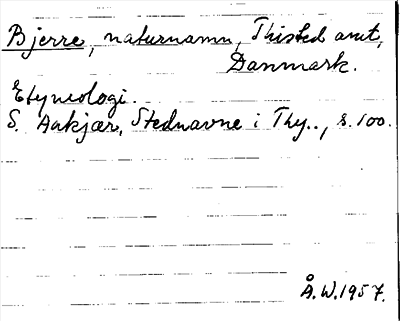 Bjerre, naturnamn, Thisted amt,
Danmark.
Etymologi.
S. Aakjær, Stednavne i Thy.., s. 100.
Å.W.1957.